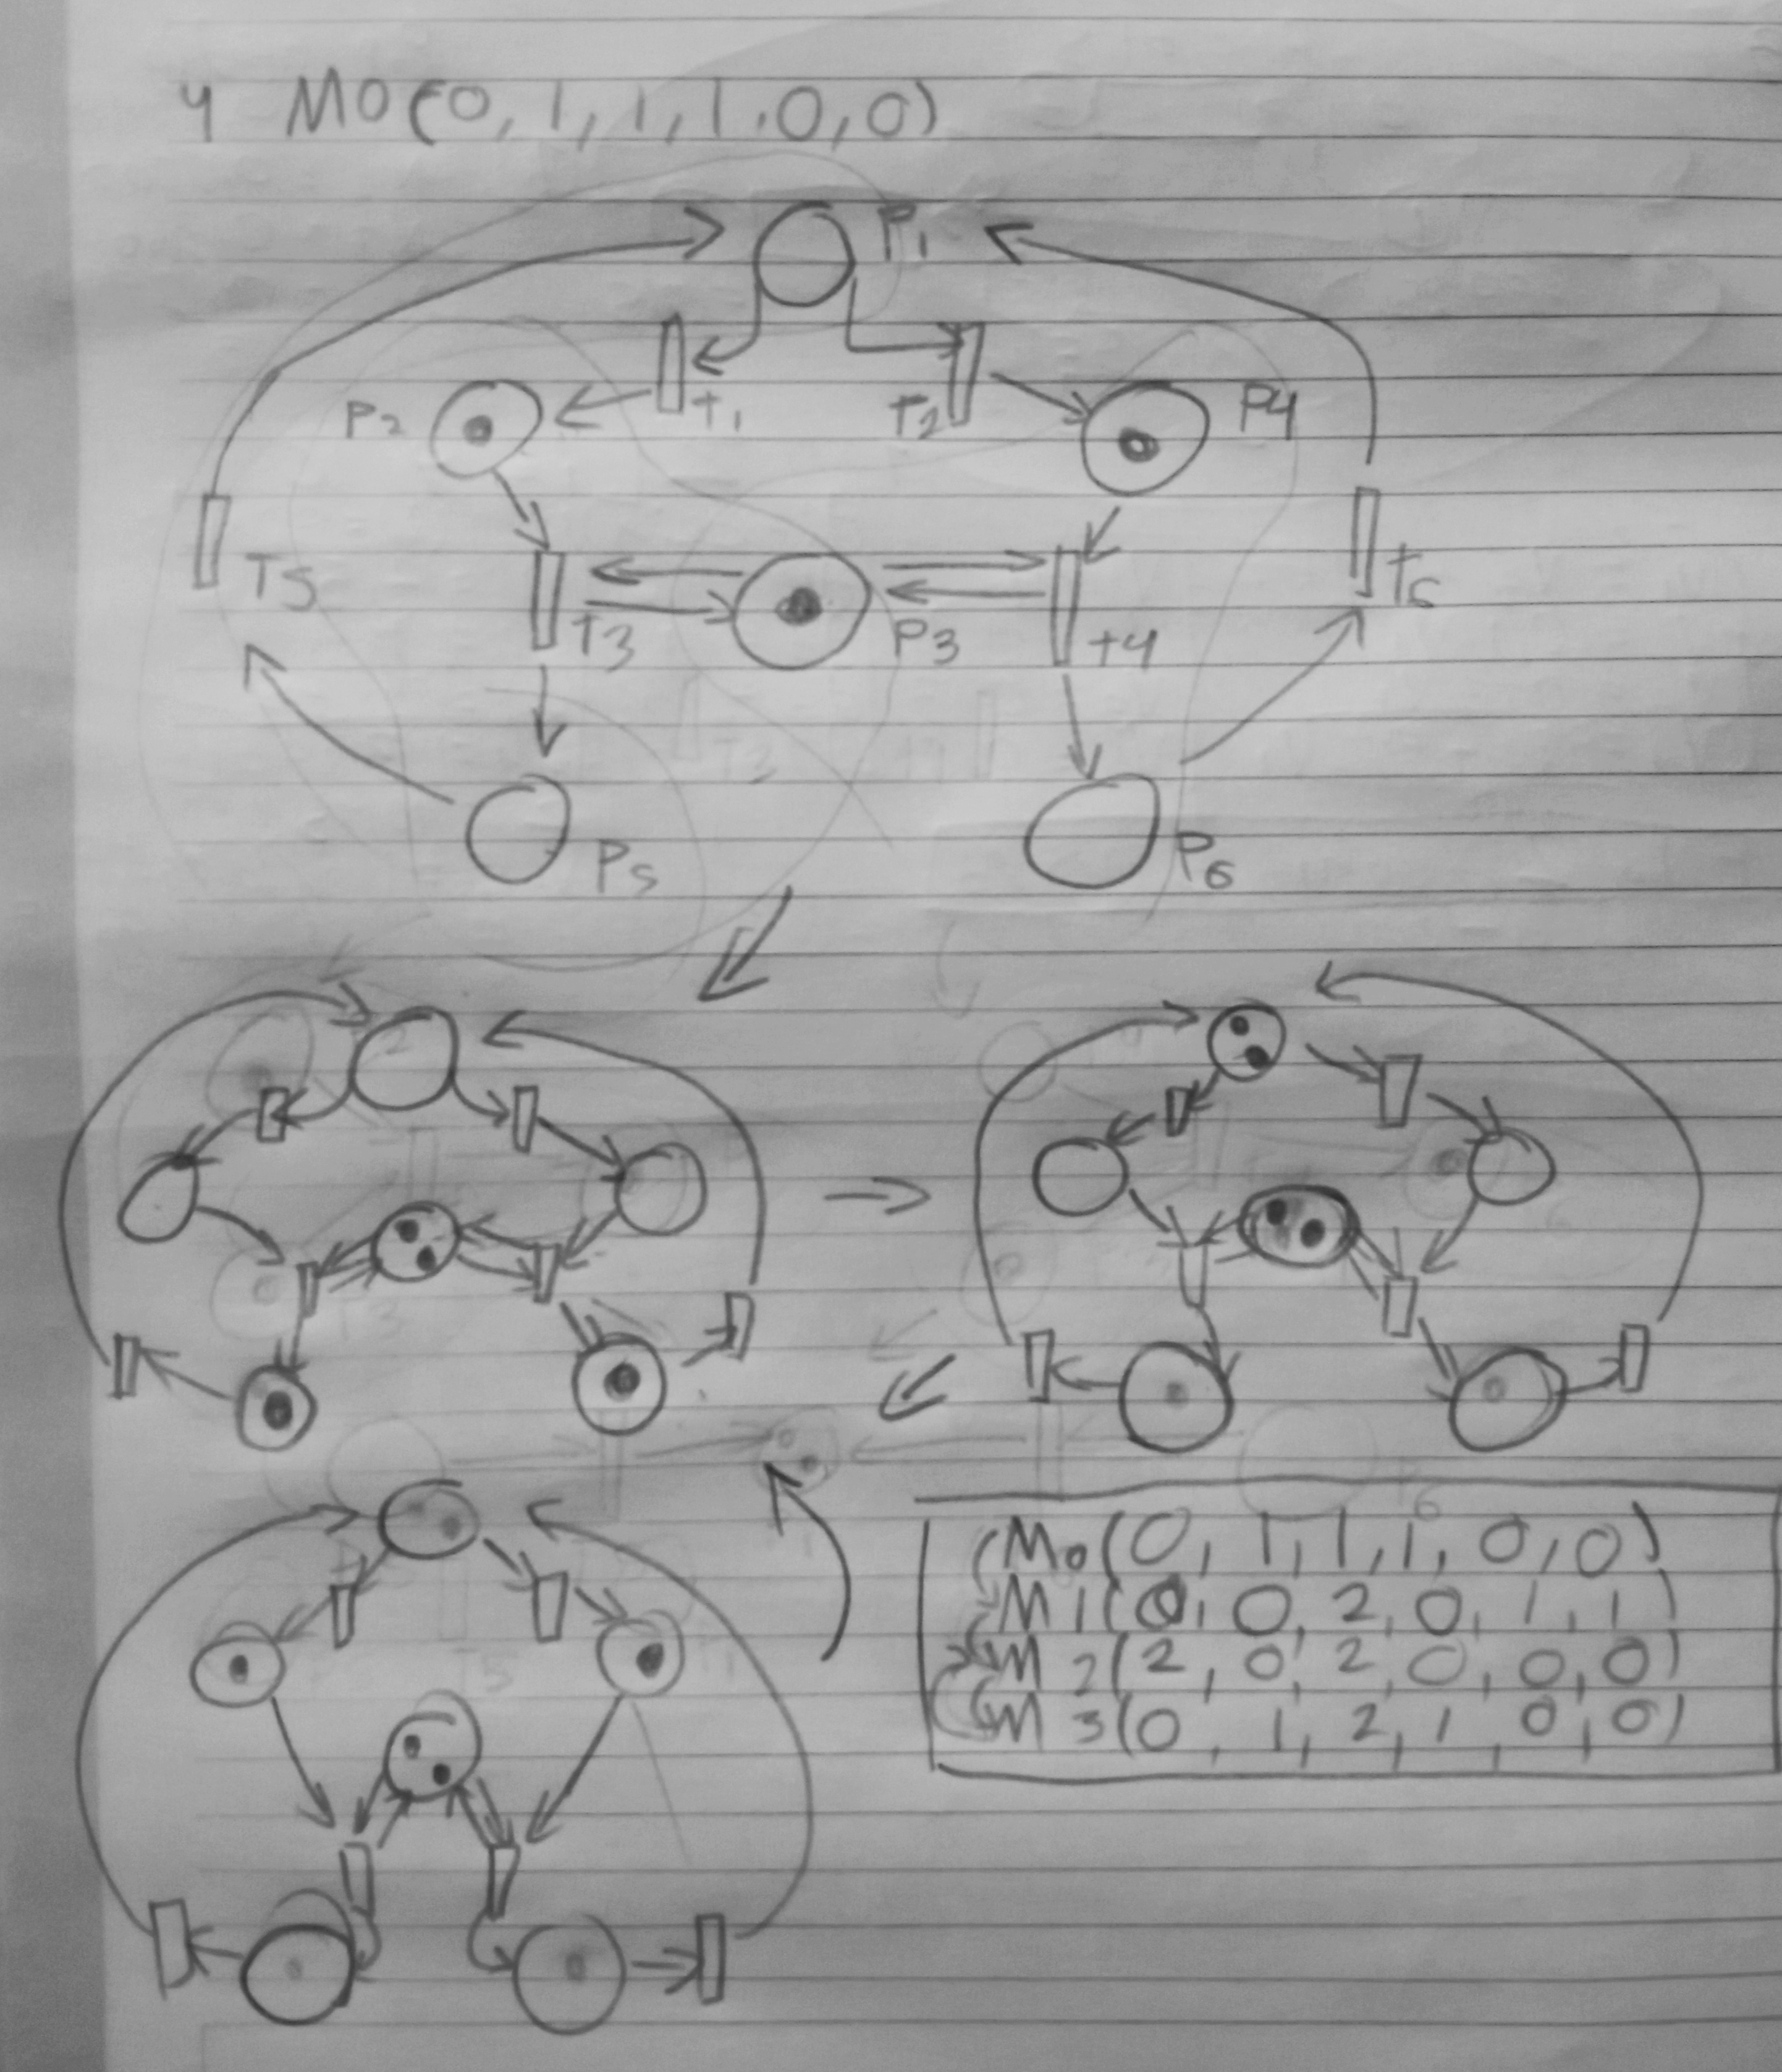 4 M0(0,1,1,1.0,0)
P1
P2 T1 T2 P4
T5 T3 P3 T4 T6
P5 P6
M0(0,1,1,1,0,0)
M1(0,0,2,0,1,1)
M2(2,0,2,0,0,0)
M3(0,1,2,1,0,0)